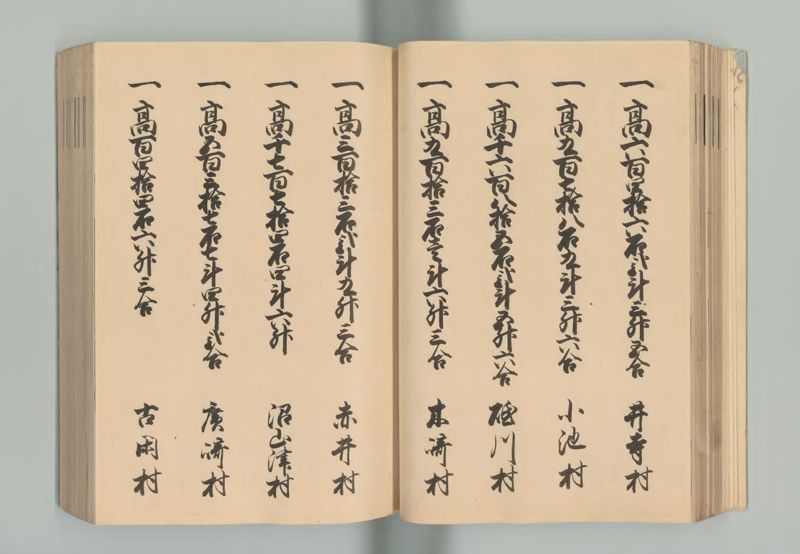 一高六百四拾六石弐斗三升五合 井寺村
一高九百七拾八石九斗三升六合 小池村
一高千六百八拾五石弐斗五升六合 砥川村
一高九百拾三石壱斗六升三合 木崎村
一高三百拾三石弐斗九升三合 赤井村
一高千七百七拾四石四斗六升 沼山津村
一高五百三拾七石七斗四升弐合 廣崎村
一高百四拾四石六升三合 古閑村